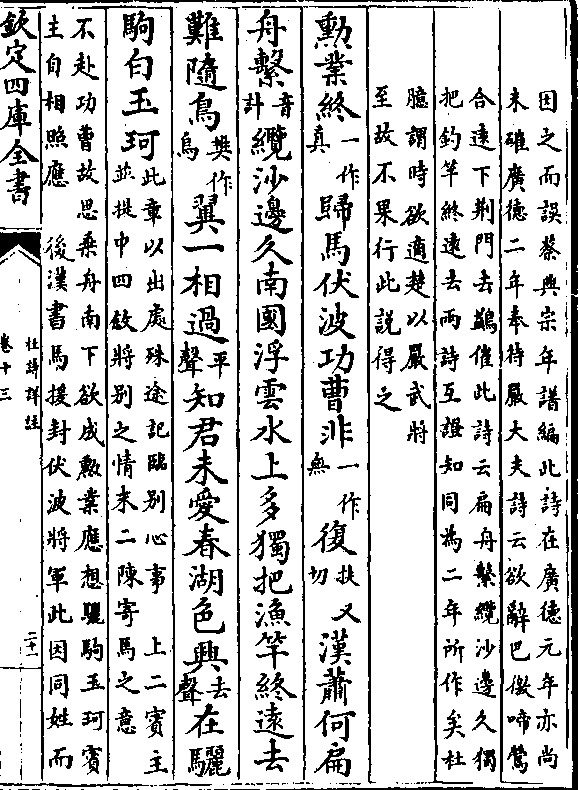 因之而誤蔡興宗年譜編此詩在廣德元年亦尚
未確廣德二年奉待嚴大夫詩云欲辭巴徼啼鶯
合遠下荆門去鷁催此詩云扁舟繫纜沙邊久獨
把釣竿終遠去兩詩互證知同為二年所作矣杜
臆謂時欲適楚以嚴武將
至故不果行此說得之
勲業終一作真歸馬伏波功曹非一作無復扶又切漢蕭何扁
舟繫音計纜沙邊久南國浮雲水上多獨把漁竿終遠去
難隨鳥樊作烏翼一相過平聲知君未愛春湖色興去聲在驪
駒白玉珂此章以出處殊途記臨別心事 上二賓主
並提中四敘將別之情末二陳寄馬之意
不赴功曹故思乘舟南下欲成勲業應想驪駒玉珂賓
主自相照應 後漢書馬援封伏波將軍此因同姓而
欽定四庫全書
杜詩詳註
卷十三